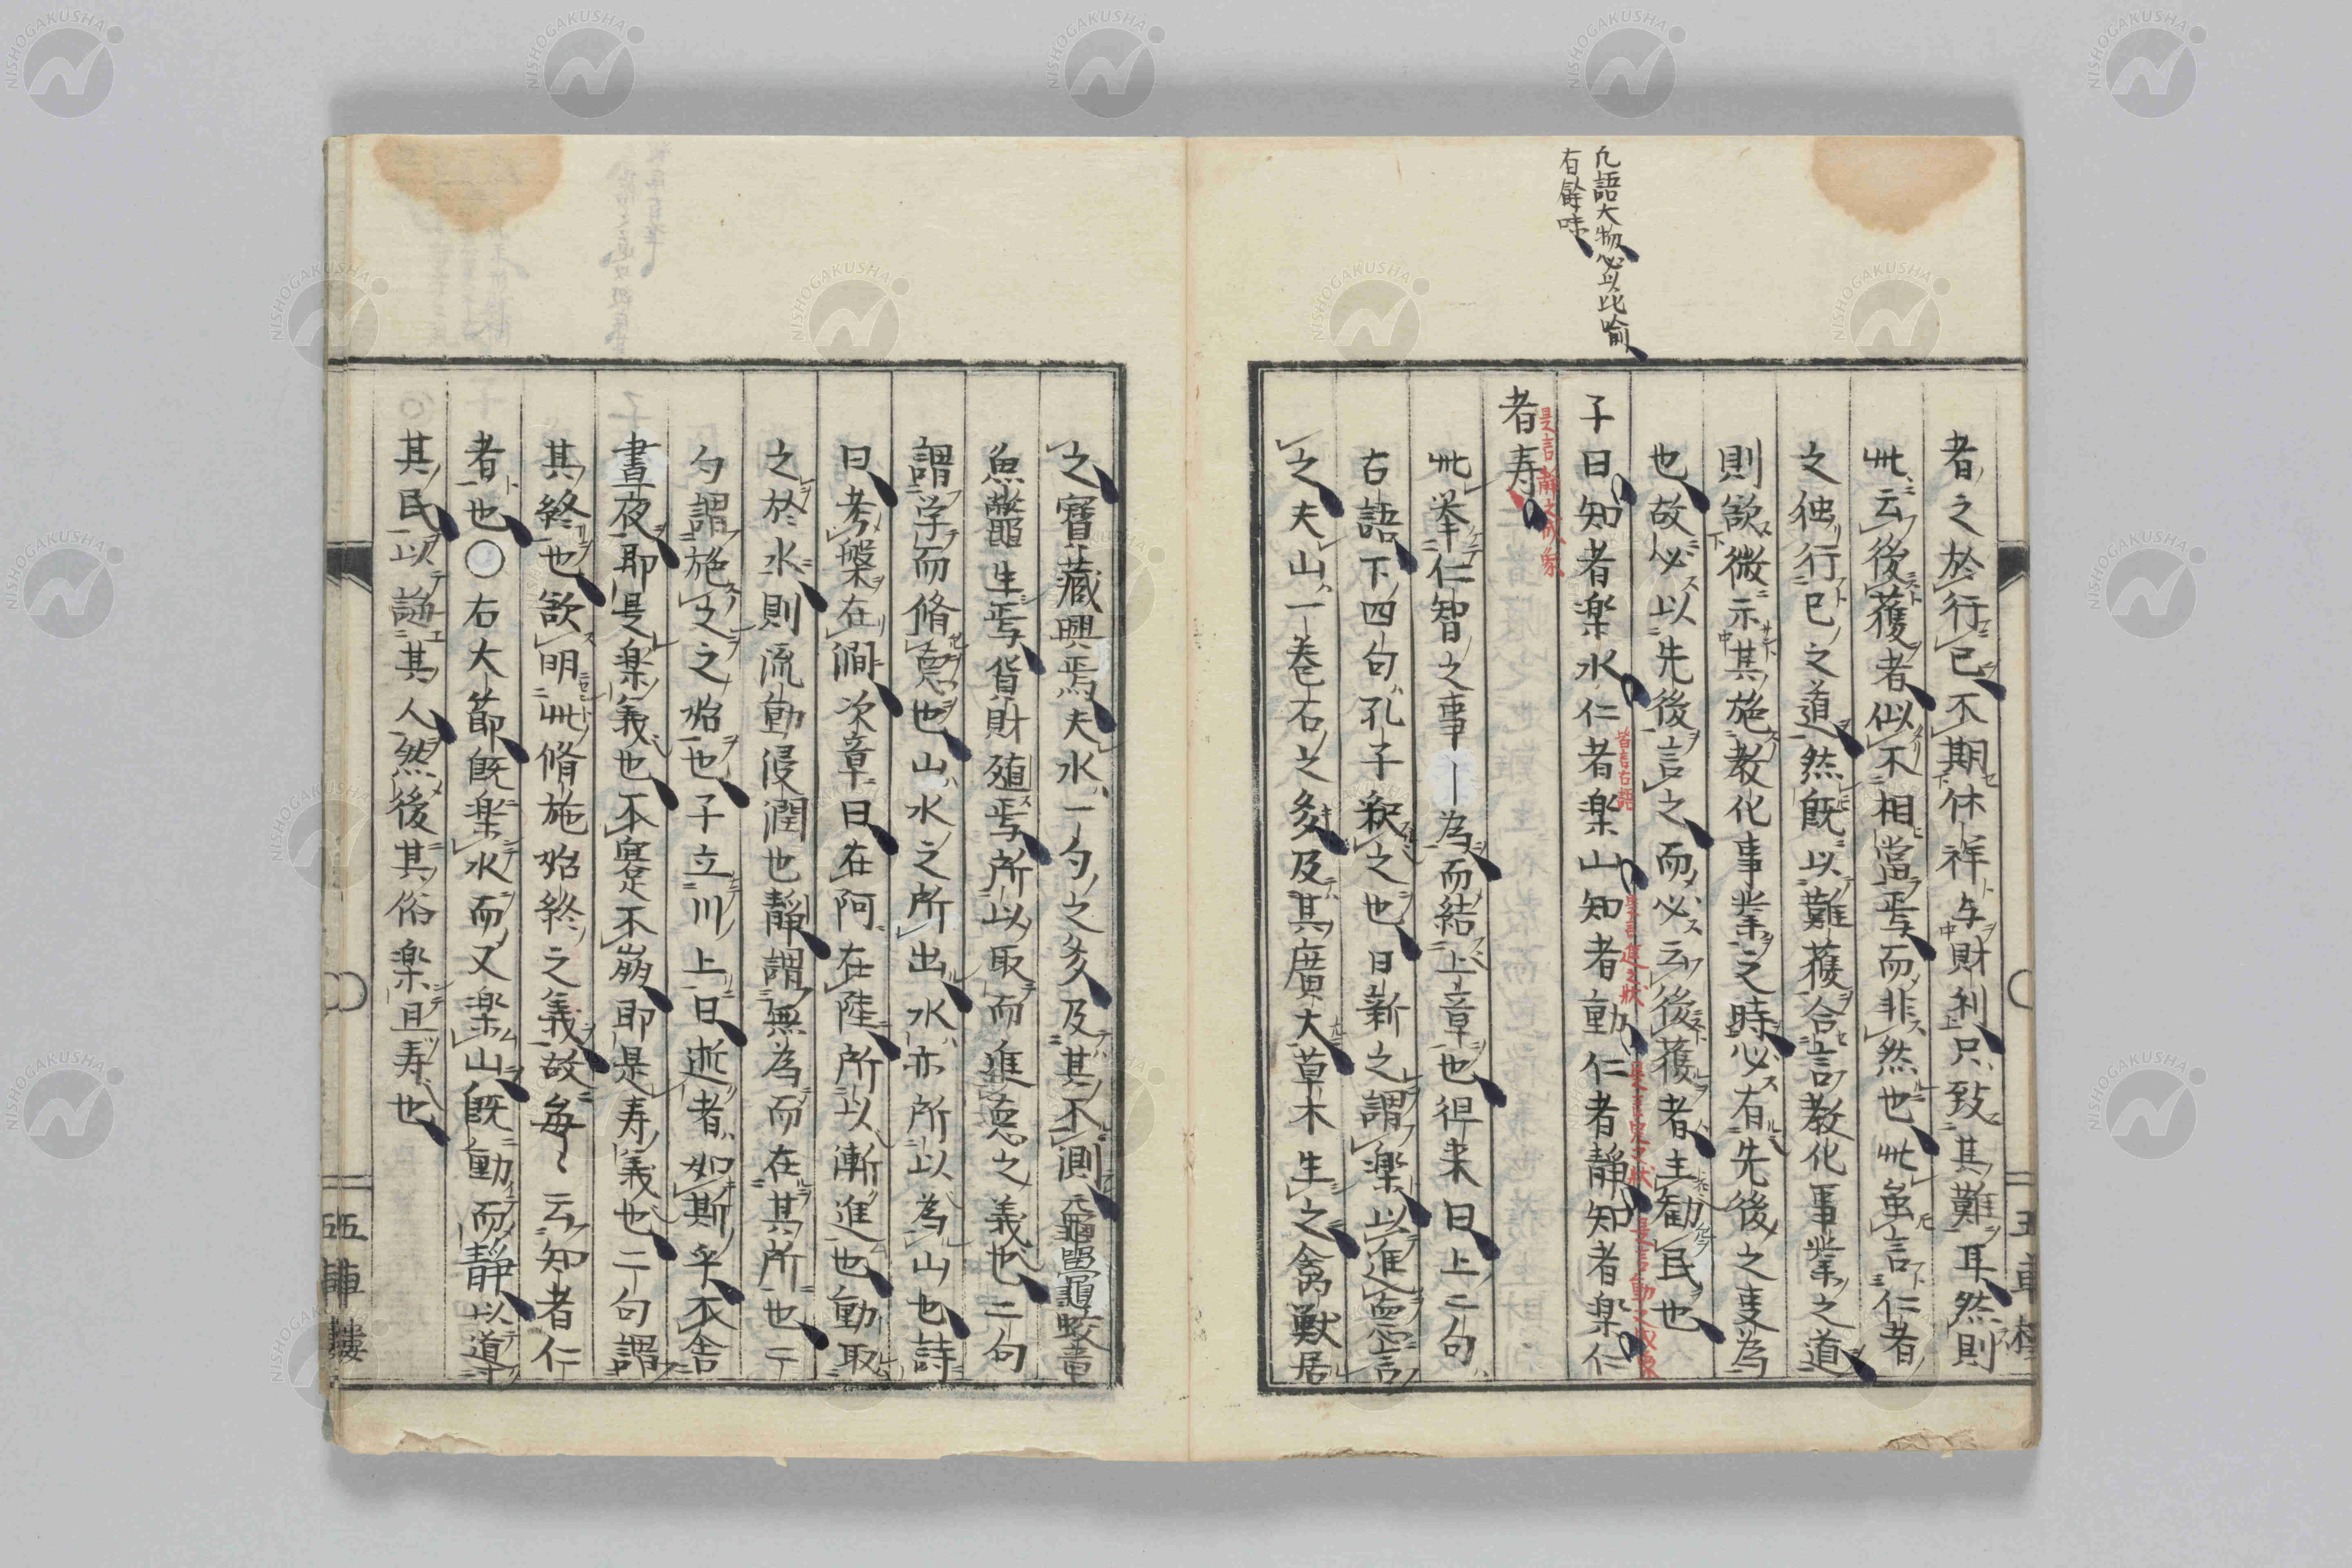 凡語大物必以比喻
有餘味
者之於行己不期休祥与財利只致其難耳然則
此云後獲者似不相當焉而非然也此虽言仁者
之独行己之道然既以難獲合言教化事業之道
則欲微示其施教化事業之時必有先後之事為
也故必以先後言之而必云後獲者主勧民也
子曰知者楽水仁者楽山知者動仁者静知者楽仁
皆言右語
是言進之状
是言動之成象
者寿
是言静之成象
此挙仁智之事為而結上章也徂来曰上二句
古語下四句孔子釈之也日新之謂楽以進悳言
之夫山一巻石之多及其廣大草木生之禽獣居
之寶蔵興焉夫水一勺之多及其不測黿鼉蛟竜
魚鼈生焉貨財殖焉所以取而進悳之義也二句
謂学而脩悳也山水之所出水亦所以為山也詩
曰考槃在澗次章曰在阿在陸所以漸進也動取
之於水則流動浸潤也静謂無為而在其所也一
勺謂施之之始也子立川上曰逝者如斯乎不舎
晝夜即是楽義也不騫不崩即是寿義也二句謂
其終也欲明此脩施始終之義故毎〻云知者仁
者也〇右大節既楽水而又楽山既動而静以道
其民以諺其人然後其俗楽且寿也
五車楼